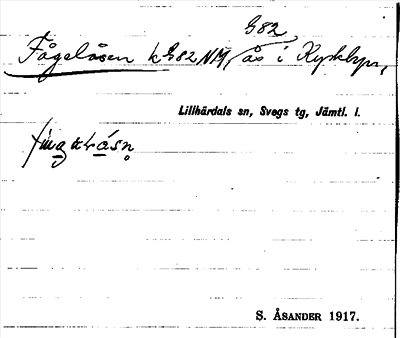 G82
Fågelåsen k G82 NV, ås i Kyrkbyn,
Lillhärdals sn, Svegs tg, Jämtl. l.
S. ÅSANDER 1917.